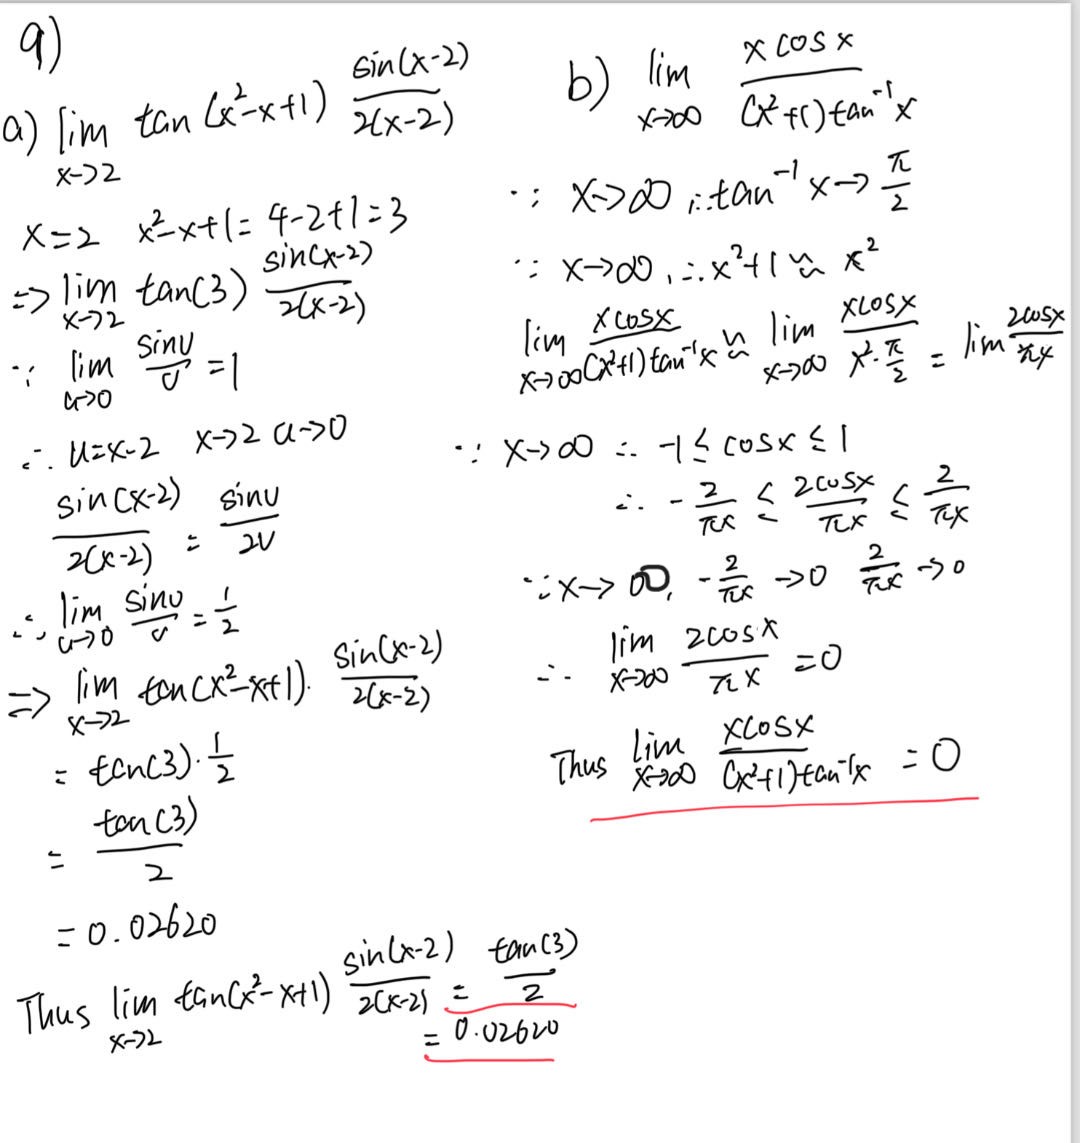 9)
a) lim x→2 tan (x²-x+1) sin(x-2)/2(x-2)
x=2 x²-x+1= 4-2+1=3
=> lim x→2 tan(3) sin(x-2)/2(x-2)
∵ lim u→0 sinu/u =1
∴ u=x-2 x→2 u→0
sin(x-2)/2(x-2) = sinu/2u
∴ lim u→0 sinu/u = 1/2
=> lim x→2 tan(x²-x+1)· sin(x-2)/2(x-2)
= tan(3)·1/2
= tan(3)/2
= 0.02620
Thus lim x→2 tan(x²-x+1) sin(x-2)/2(x-2) = tan(3)/2
= 0.02620
b) lim x→∞ x cosx/(x²+1)tan⁻¹x
∵ x→∞ ∴ tan⁻¹x→ π/2
∵ x→∞, ∴ x²+1 ≈ x²
lim x→∞ xcosx/(x²+1)tan⁻¹x ≈ lim x→∞ xcosx/x²·π/2 = lim 2cosx/πx
∵ x→∞ ∴ -1≤ cosx ≤1
∴ -2/πx ≤ 2cosx/πx ≤ 2/πx
∵ x→∞, -2/πx →0 2/πx →0
∴ lim x→∞ 2cosx/πx =0
Thus lim x→∞ xcosx/(x²+1)tan⁻¹x =0